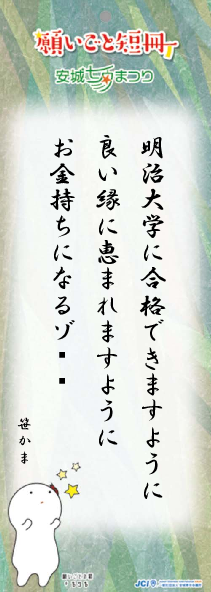 願いごと短冊
安城七夕まつり
明治大学に合格できますように
良い縁に恵まれますように
お金持ちになるゾ
笹かま
JCI